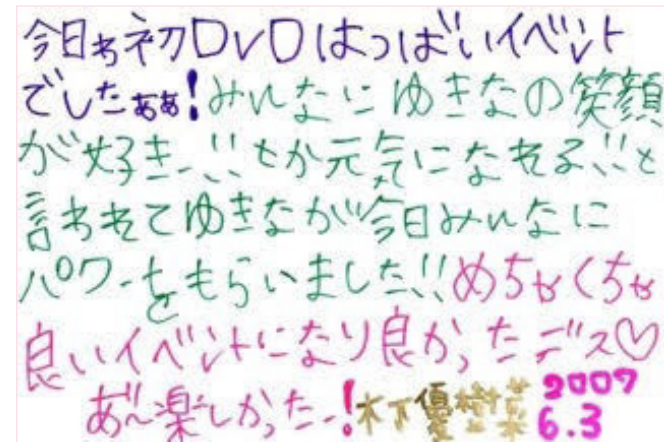 今日ゎ初DVDはつばいイベント
でしたぁぁ!みんなにゆきなの笑顔
が好き-!!とか元気になれる!!と
言ゎれてゆきなが今日みんなに
パワーをもらいました!!めちゃくちゃ
良いイベントになり良かったデス♡
あ〜楽しかったー!木下優樹菜 2007
6.3